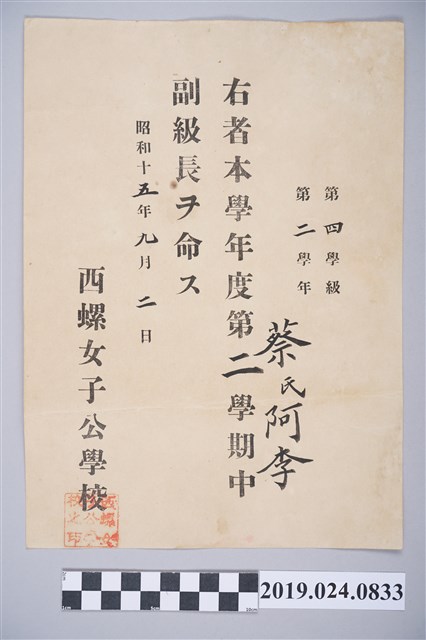 第四學級
第二學年
蔡氏阿李
右者本學年度第二學期中
副級長ヲ命ス
昭和十五年九月二日
西螺女子公學校
2019.024.0833